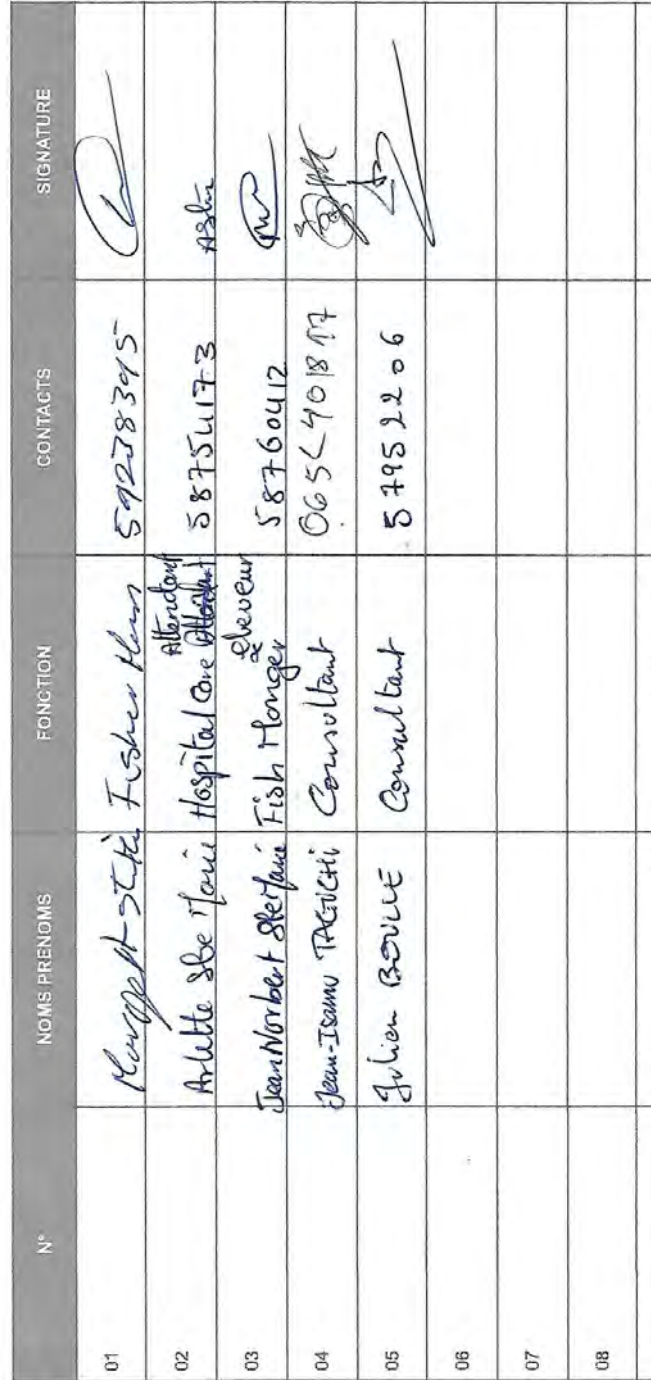 N° NOMS PRENOMS FONCTION CONTACTS SIGNATURE
01 Fisher 59238395
02 Arlette Ste Marie Hospital Care Attendant 58754173
03 Jean Norbert Ste Marie Fish Monger & éleveur 58760412
04 Jean-Isamu TAGUCHI Consultant
05 Julien BOULLE Consultant 57952206
06
07
08